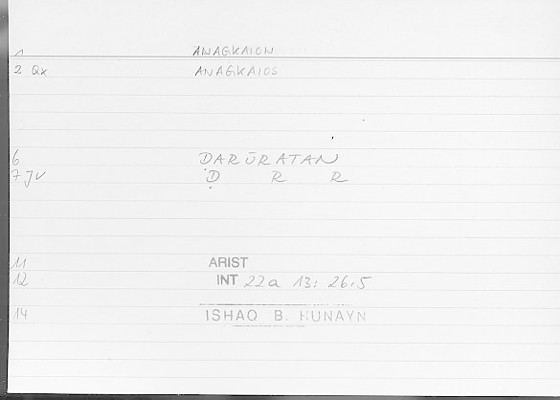 1 ANAGKAION
2 Qx ANAGKAIOS
6 ḌARŪRATAN
7 JV Ḍ R R
11 ARIST
12 INT 22a 13: 26,5
14 ISHAQ B. HUNAYN